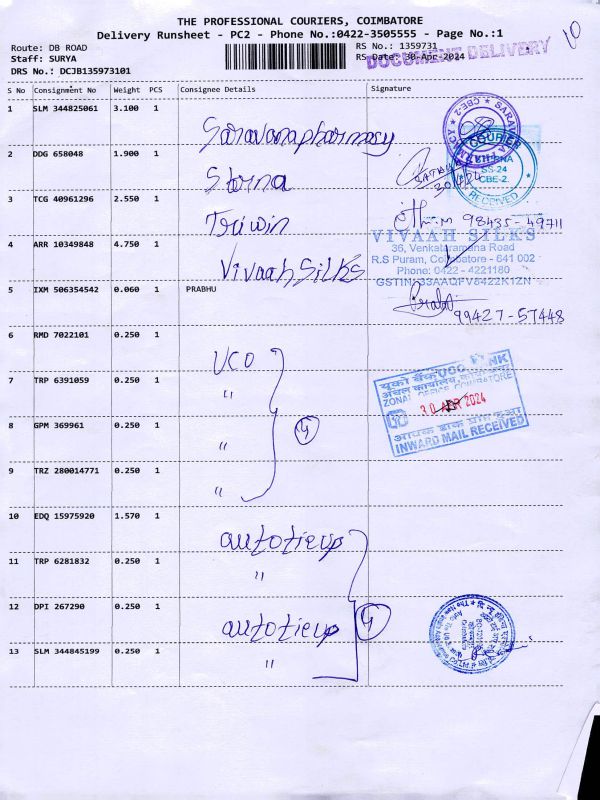 THE PROFESSIONAL COURIERS, COIMBATORE
Delivery Runsheet - PC2 - Phone No.:0422-3505555 - Page No.:1
10
Route: DB ROAD
Staff: SURYA
DRS No.: DCJB135973101
RS No.: 1359731
RS Date: 30-Apr-2024
DOCUMENT DELIVERY
S No Consignment No Weight PCS Consignee Details Signature
1 SLM 344825061 3.100 1 Saravanapharmacy
2 DDG 658048 1.900 1 Storna
COURIER
SS-24
CBE-2.
RECEIVED
30/4/24
3 TCG 40961296 2.550 1 Triwin
98435-49711
4 ARR 10349848 4.750 1 Vivaah Silks
VIVAAH SILKS
36, Venkataramana Road
R.S Puram, Coimbatore - 641 002
Phone: 0422 - 4221180
GSTIN: 33AAQFV8422K1ZN
5 IXM 506354542 0.060 1 PRABHU
Prabhu
99427-57448
6 RMD 7022101 0.250 1 UCO
7 TRP 6391059 0.250 1 "
8 GPM 369961 0.250 1 " 4
9 TRZ 280014771 0.250 1 "
यूको बैंक UCO BANK
अंचल कार्यालय, कोयम्बत्तूर
ZONAL OFFICE, COIMBATORE
30 APR 2024
आवक डाक प्राप्त हुआ
INWARD MAIL RECEIVED
10 EDQ 15975920 1.570 1 autotieup
11 TRP 6281832 0.250 1 "
12 DPI 267290 0.250 1 autotieup 4
13 SLM 344845199 0.250 1 "